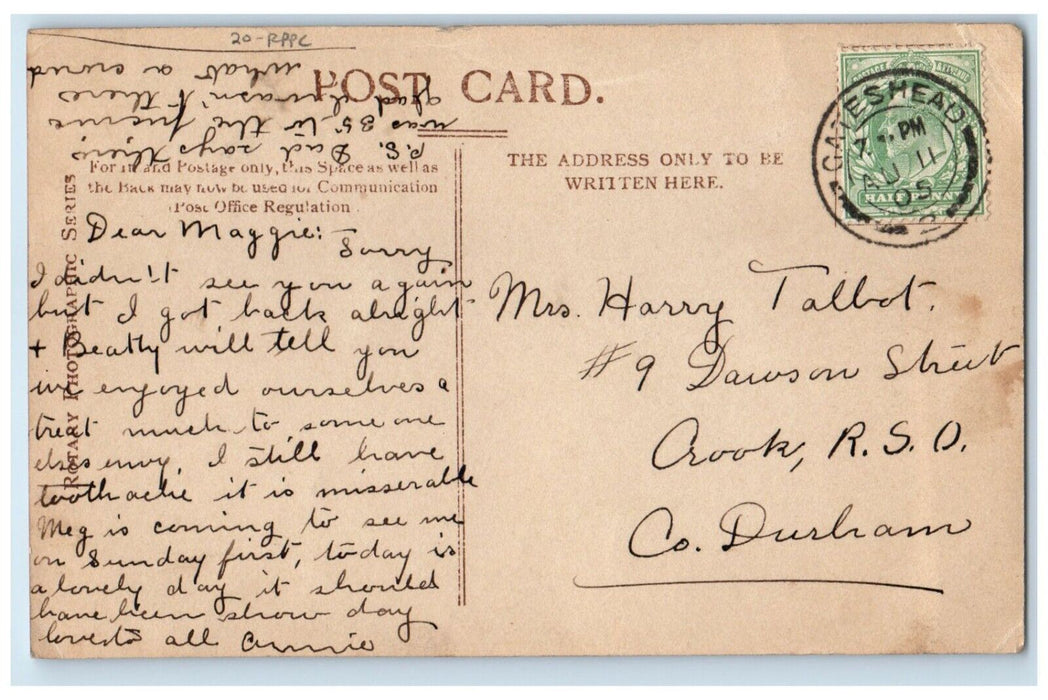 20-RPPC
POST CARD.
For Inland Postage only, this Space as well as
the Back may now be used for Communication
Post Office Regulation
THE ADDRESS ONLY TO BE
WRITTEN HERE.
ROTARY PHOTOGRAPHIC SERIES
GATESHEAD
PM
AU 11
05
POSTAGE
HALFPENNY
Dear Maggie: Sorry
I didn't see you again
but I got back alright
+ Beatty will tell you
we enjoyed ourselves a
treat much to some one
elses envy, I still have
toothache it is misserable
Meg is coming to see me
on Sunday first, today is
a lovely day it should
have been show day
love to all Annie
P.S. Dad says theirs
was 35 to the
glad I wasn't there
what a crowd
Mrs. Harry Talbot.
#9 Dawson Street
Crook, R.S.O.
Co. Durham